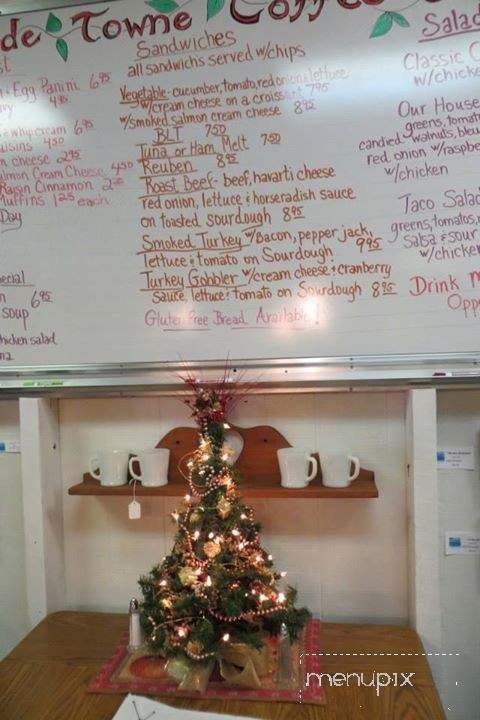 de Towne Coffee
Sandwiches
all sandwichs served w/chips
Vegetable- cucumber, tomato, red onion & lettuce
w/cream cheese on a croissant 7.95
w/smoked salmon cream cheese 8.95
BLT 7.50
Tuna or Ham Melt 7.50
Reuben 8.95
Roast Beef- beef, havarti cheese
red onion, lettuce & horseradish sauce
on toasted sourdough 8.95
Smoked Turkey w/Bacon, pepper jack,
lettuce & tomato on Sourdough 9.95
Turkey Gobbler w/cream cheese & cranberry
Sauce, lettuce & tomato on Sourdough 8.95
Gluten Free Bread Available!
& Egg Panini 6.95
4.95
& whip cream 6.95
4.50
cheese 2.95
Salmon Cream Cheese 4.50
Raisin Cinnamon
Muffins 1.25 each
Day
6.95
soup
chicken salad
Salad
Classic C
w/chicken
Our House
greens, tomato
candied walnuts, bleu
red onion w/raspbe
w/chicken
Taco Salad
greens, tomatos,
salsa & sour
w/chicken
Drink
menupix